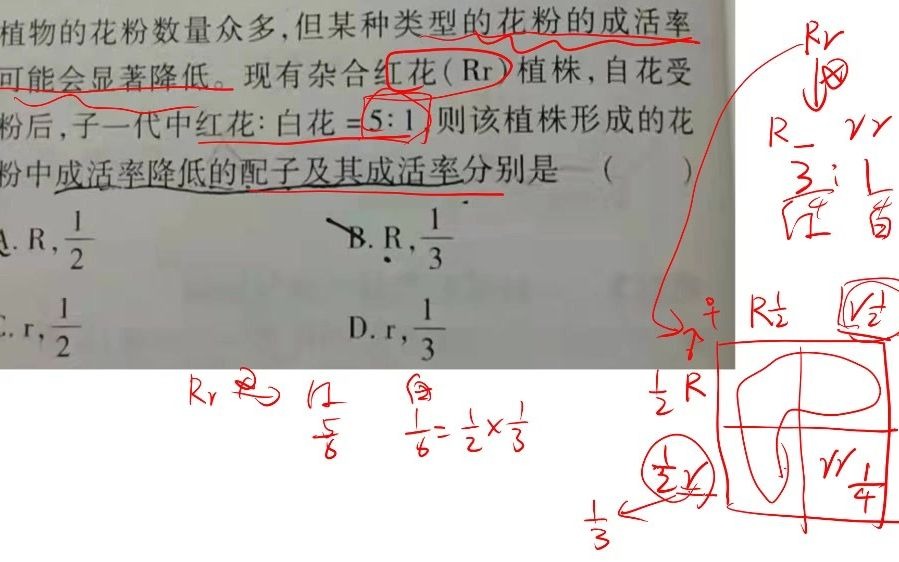 植物的花粉数量众多,但某种类型的花粉的成活率
可能会显著降低。现有杂合红花(Rr)植株,自花受
粉后,子一代中红花:白花=5:1,则该植株形成的花
粉中成活率降低的配子及其成活率分别是 ( )
A. R, 1/2
B. R, 1/3
C. r, 1/2
D. r, 1/3
Rr
⊗
R_ rr
3/4 : 1/4
红 白
♀ R 1/2 r 1/2
♂
1/2 R
1/2 r
rr 1/4
1/3
Rr ⊗ 红 白
5/6 1/6 = 1/2 × 1/3